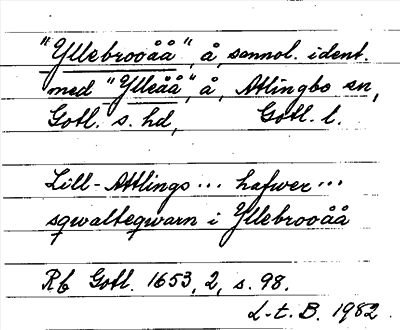 "Yllebrooåå", å, sannol. ident.
med "Ylleåå", å, Atlingbo sn,
Gotl. s. hd, Gotl. l.
Lill-Attlings ... hafwer ...
sqwalteqwarn i Yllebrooåå
Rb Gotl. 1653, 2, s. 98.
L-t. B. 1982